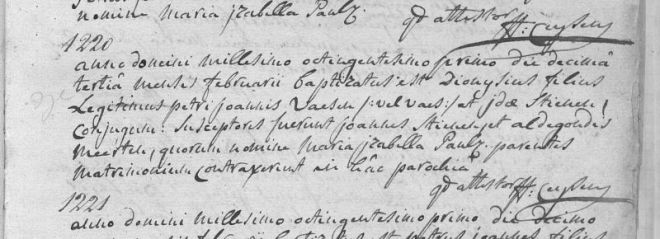 nomine maria jzabella Pauly.
qd attestor H: Cuylens
1220
anno domini millesimo octingentesimo primo die decimâ
tertiâ mensis februarii baptizatus est Dionysius filius
Legitimus petri joannis Vaesen /: vel vaes :/ et jdæ Stienen,
Conjugum: Susceptores fuerunt joannes Stienen, et aldegondis
meerten, quorum nomine maria jzabella Pauly. parentes
matrimonium contraxerunt in hâc parochiâ
qd attestor H: Cuylens
1221
anno domini millesimo octingentesimo primo die decimo
filius